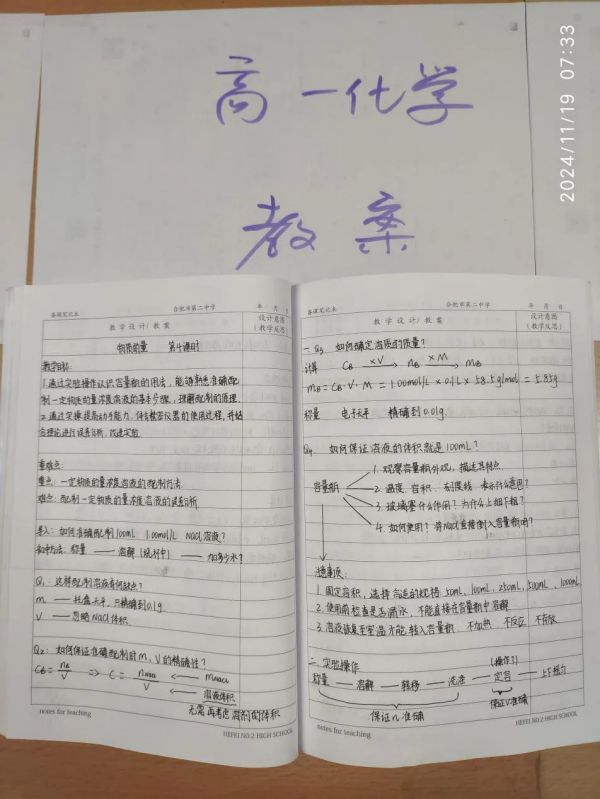 高一化学
教案
2024/11/19 07:33
备课笔记本 合肥市第二中学 年 月 日
教学设计/教案 设计意图(教学反思)
物质的量 第4课时
教学目标:
1.通过实验操作认识容量瓶的用法,能够熟悉准确配
制一定物质的量浓度溶液的基本步骤,理解配制的原理.
2.通过实操提高动手能力,体会精密仪器的使用过程,并结
合理论进行误差分析,改进实验.
重难点:
重点:一定物质的量浓度溶液的配制方法
难点:配制一定物质的量浓度溶液的误差分析.
导入:如何准确配制100mL 1.00mol/L NaCl溶液?
初中方法:称量 —— 溶解(烧杯中) —— 加多少水?
Q1:这样配制溶液有何缺点?
m —— 托盘天平,只精确到0.1g
V —— 忽略NaCl体积
Q2:如何保证准确配制时m,V的精确性?
CB = nB/V ⇒ C = nNaCl/V ← mNaCl
← 溶液体积
无需再考虑溶剂的体积
notes for teaching HEFEI NO.2 HIGH SCHOOL
备课笔记本 合肥市第二中学 年 月 日
教学设计/教案 设计意图(教学反思)
一 Q3 如何确定溶质的质量?
计算 CB —×V→ nB —×M→ mB
mB = CB·V·M = 1.00mol/L × 0.1L × 58.5g/mol = 5.85g
称量 电子天平 精确到0.01g.
Q4 如何保证溶液的体积就是100mL?
1.观察容量瓶外观,描述其特点.
容量瓶 2.温度、容积、刻度线 表示什么意思?
3.玻璃塞什么作用?为什么上细下粗?
4.如何使用?将NaCl直接倒入容量瓶吗?
注意事项:
1.固定容积,选择合适的规格 50mL,100mL,250mL,500mL,1000mL
2.使用前检查是否漏水,不能直接在容量瓶中溶解
3.溶液恢复至室温才能转入容量瓶 不加热 不反应 不存放
二.实验操作 (操作?)
称量 —— 溶解 —— 转移 —— 洗涤 —— 定容 —— 上下摇匀
保证n准确 保证V准确
notes for teaching HEFEI NO.2 HIGH SCHOOL